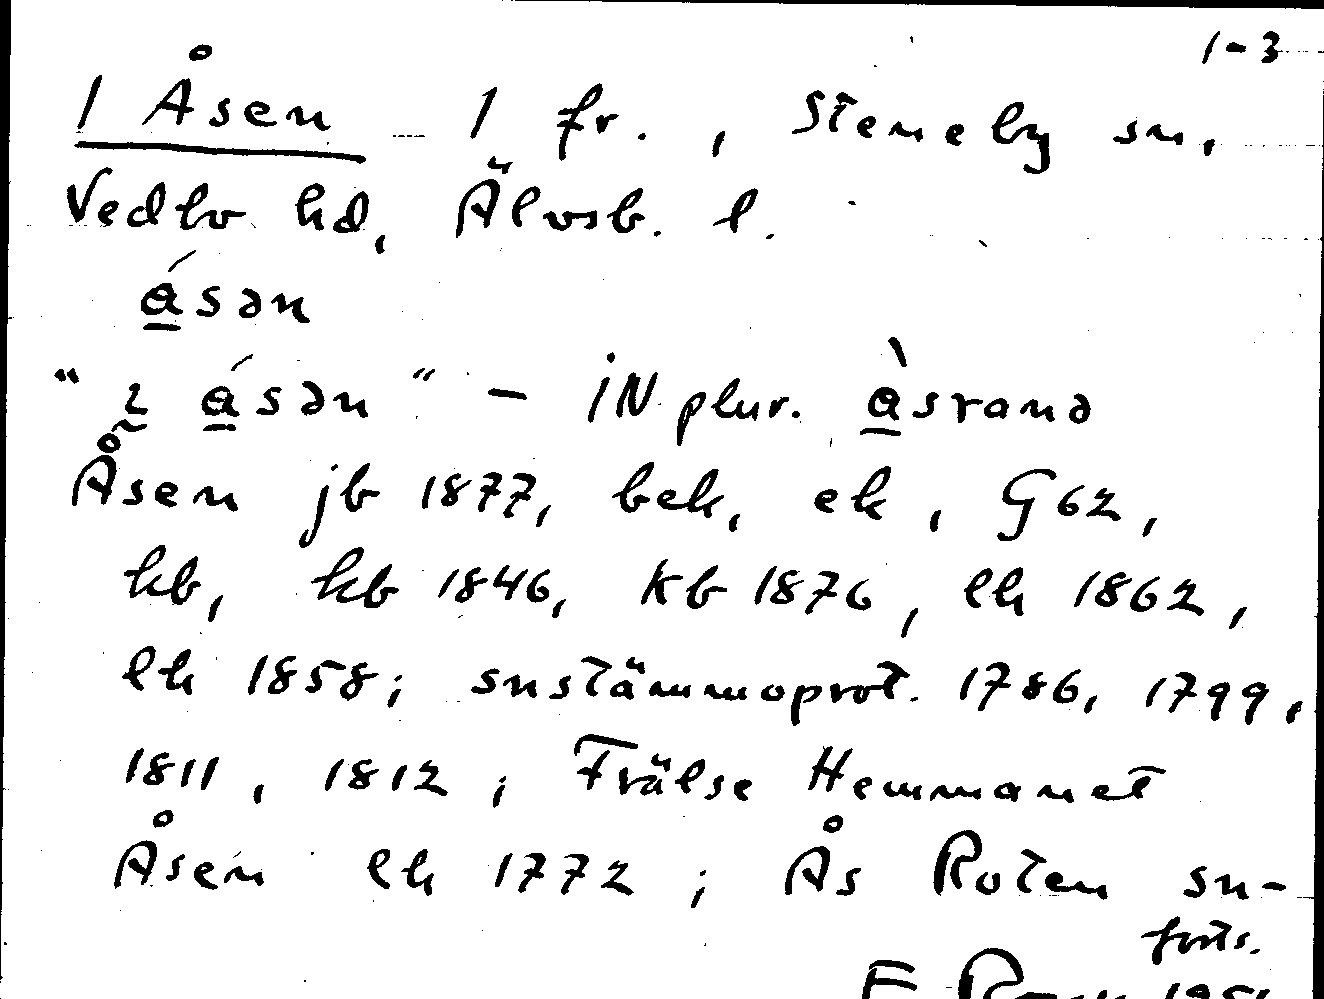 1-3
1 Åsen 1 fr., Steneby sn,
Vedbo hd, Älvsb. l.
á̲sən
"ı̰ á̲sən" - IN plur. à̲srana
Åsen jb 1877, bek, ek, G62,
kb, kb 1846, Kb 1876, lh 1862,
lh 1858; snstämmoprot. 1786, 1799,
1811, 1812; Frälse Hemmanet
Åsen lh 1772; Ås Roten sn-
forts.